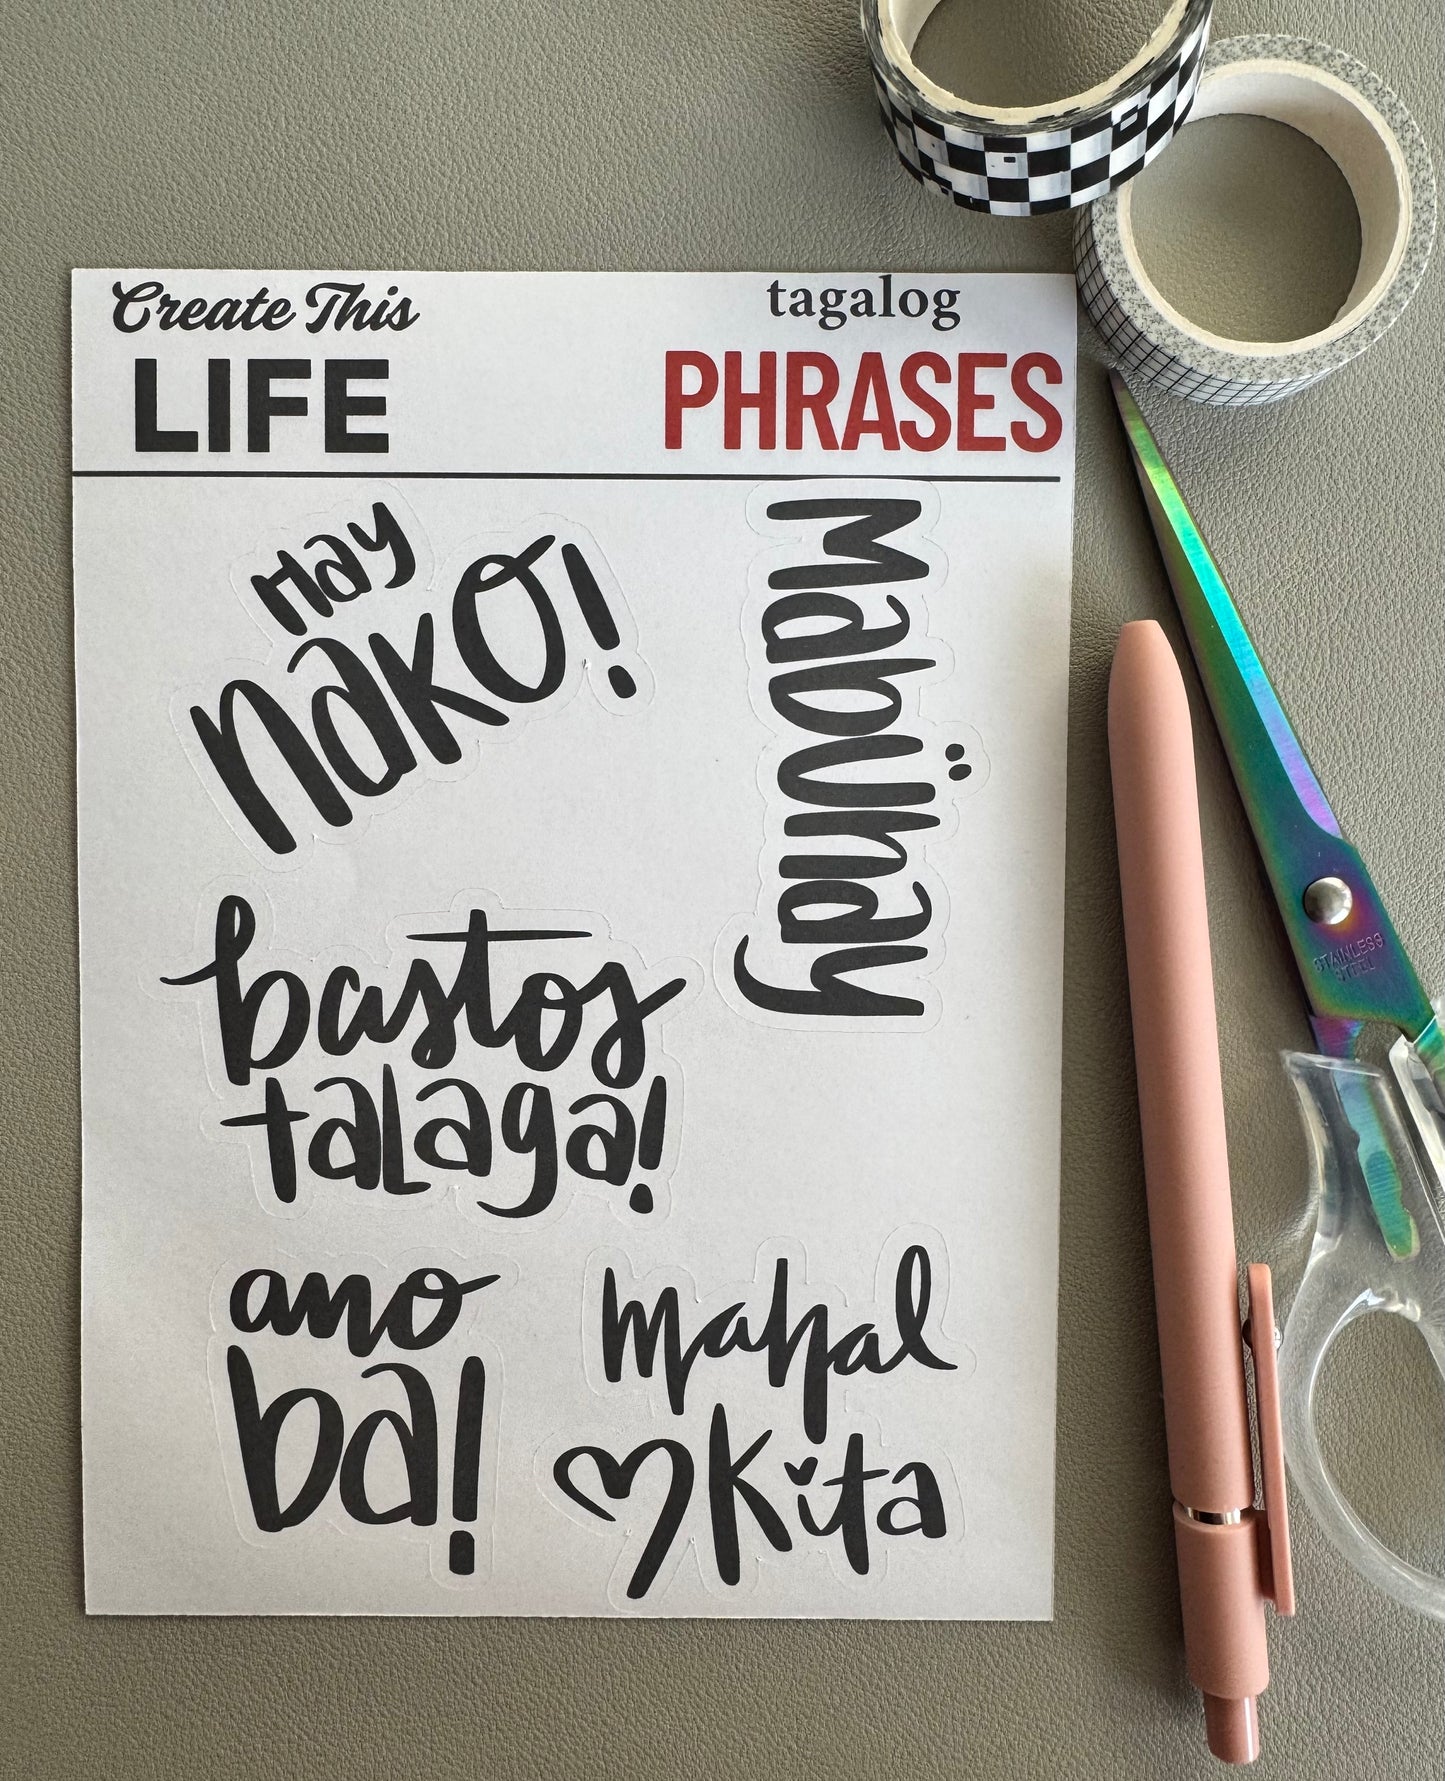 Create This
LIFE
tagalog
PHRASES
Hay
nako!
Mabuhay
bastos
talaga!
ano
ba!
mahal
kita
STAINLESS
STEEL